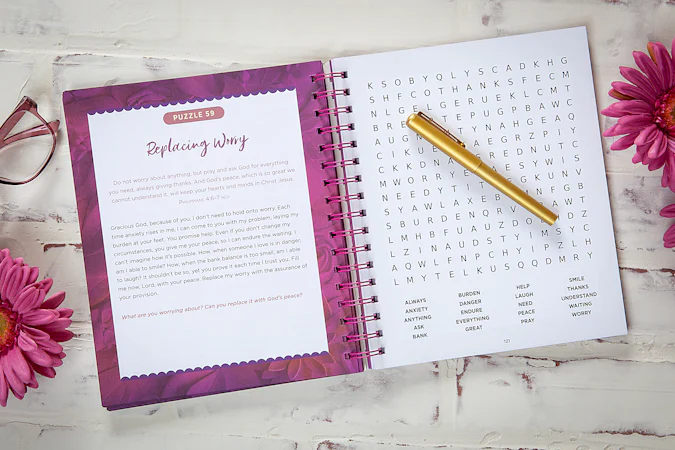 PUZZLE 59
Replacing Worry
Do not worry about anything, but pray and ask God for everything
you need, always giving thanks. And God's peace, which is so great we
cannot understand it, will keep your hearts and minds in Christ Jesus.
PHILIPPIANS 4:6–7
Gracious God, because of you I don't need to hold onto worry. Each
time anxiety rises in me, I can come to you with my problem, laying my
burden at your feet. You promise help. Even if you don't change my
circumstances, you give me your peace, so I can endure the waiting. I
can't imagine how it's possible. How, when someone I love is in danger,
am I able to smile? How, when the bank balance is too small, am I able
to laugh? It shouldn't be so, yet you prove it each time I trust you. Fill
me now, Lord, with your peace. Replace my worry with the assurance of
your provision.
What are you worrying about? Can you replace it with God's peace?
K S O B Y Q L Y S C A D K H G
S H F C O T H A N K S F E C M
N G E G E R U E K L C M T
B R E T E P U G P B A W C
A U G Y N A H G E A
C I K A E G R Z P I Y
C K K D N A E D N U T C
M W O R R Y S Y W I S
N E E D Y T T
S Y A W L A X E B N F G B
S B U R D E N Q R V
L M H B F U A U Z D
L Z I N A U D S T
A Q W L F N P C H Y I P Z L H
L M Y T E L K U S Q Q D M R Y
ALWAYS BURDEN HELP SMILE
ANXIETY DANGER LAUGH THANKS
ANYTHING ENDURE NEED UNDERSTAND
ASK EVERYTHING PEACE WAITING
BANK GREAT PRAY WORRY
121